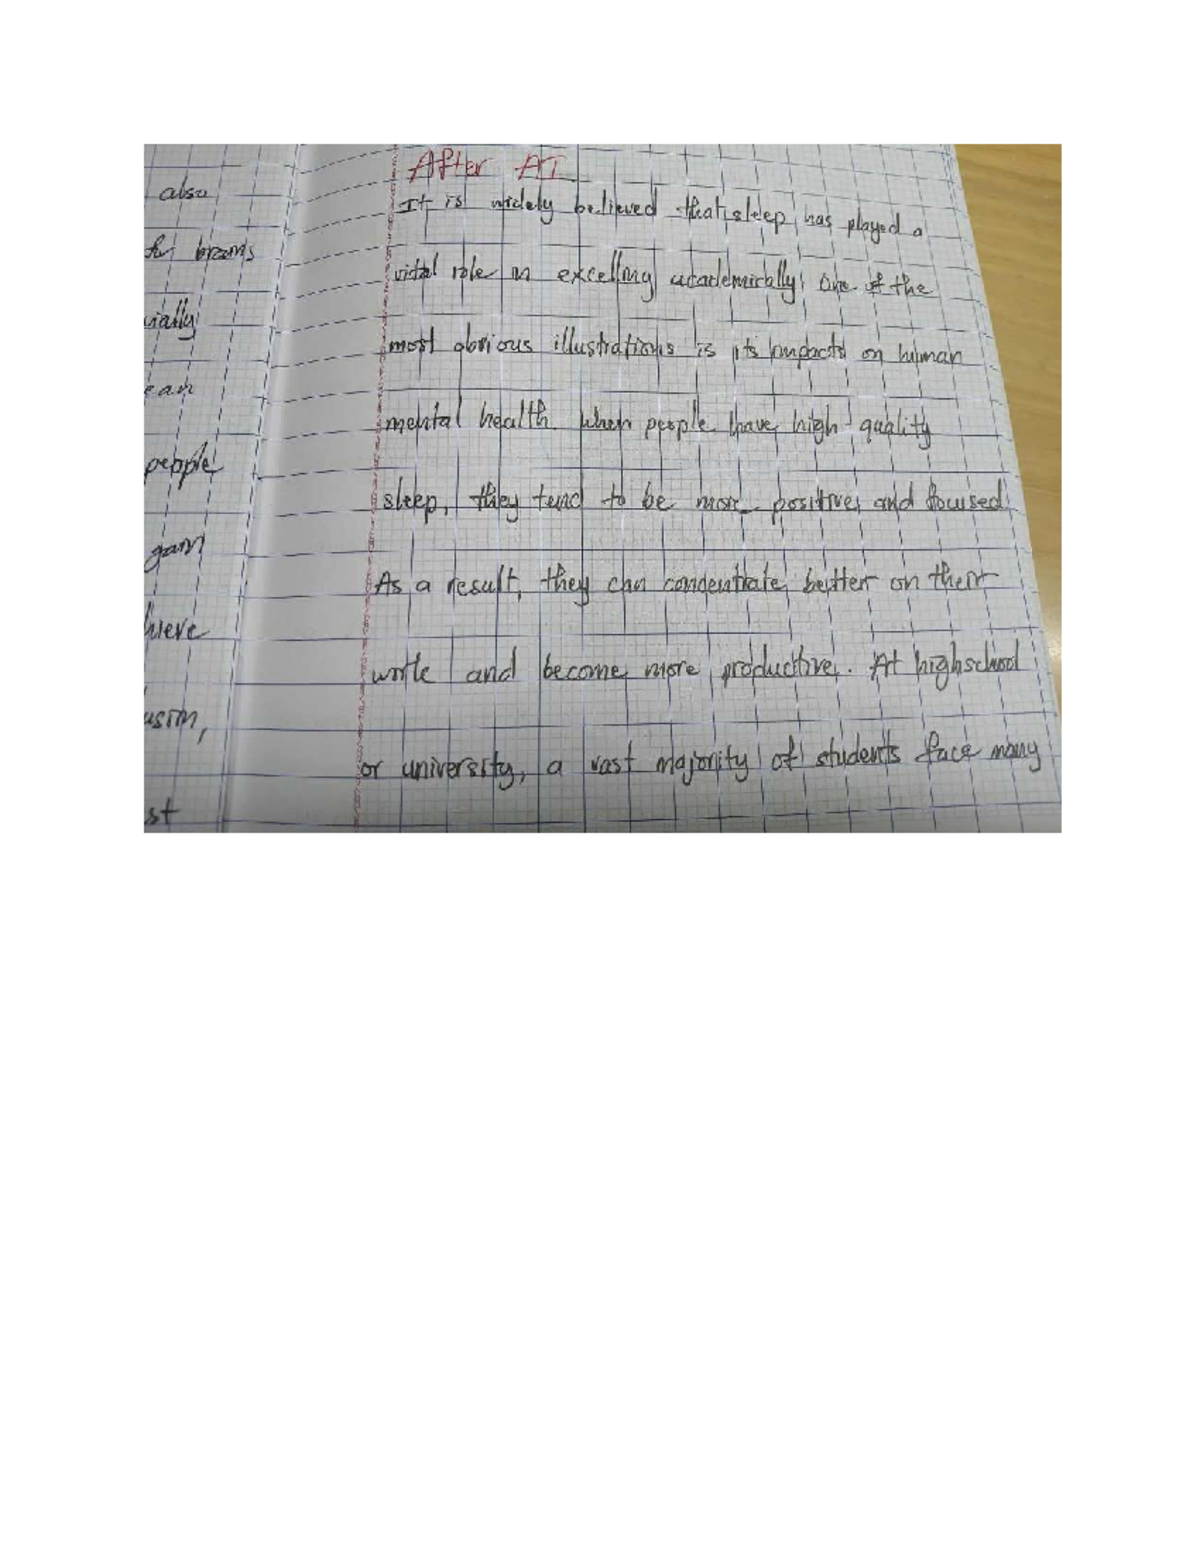 After AI
also
It is widely believed that sleep has played a
brains
vital role in excelling academically. One of the
most obvious illustrations is its impacts on human
ean
mental health when people have high quality
people
sleep, they tend to be more positive and focused
gain
As a result, they can concentrate better on their
hieve
work and become more productive. At highschool
or university, a vast majority of students face many
st